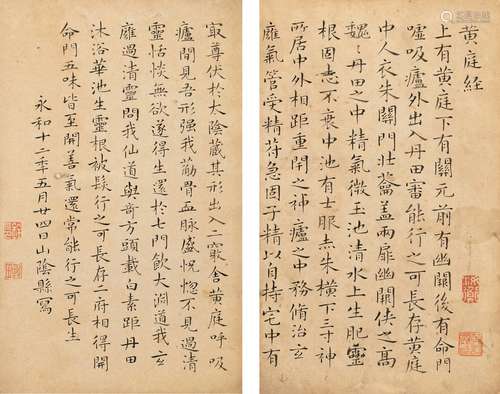 黃庭経
上有黃庭下有關元前有幽闕後有命門
噓吸廬外出入丹田審能行之可長存黃庭
中人衣朱關門壯籥蓋兩扉幽闕俠之高
魏〻丹田之中精氣微玉池清水上生肥靈
根固志不衰中池有士服赤朱橫下三寸神
所居中外相距重閉之神廬之中務脩治玄
廱氣管受精苻急固子精以自持宅中有
冣尊伏於大陰藏其形出入二竅舍黃庭呼吸
廬間見吾形强我筋骨血脉盛恍惚不見過清
靈恬惔無欲遂得生還於七門飲大淵道我玄
廱過清靈問我仙道與奇方頭戴白素距丹田
沐浴華池生靈根被髮行之可長存二府相得開
命門五味皆至開善氣還常能行之可長生
永和十二年五月廿四日山陰縣寫